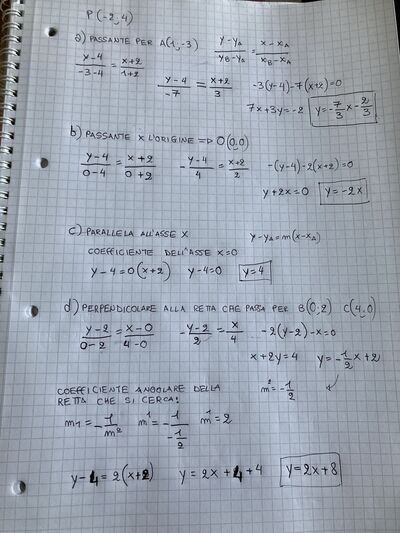 P(-2,4)
a) PASSANTE PER A(1,-3) (y-yA)/(yB-yA) = (x-xA)/(xB-xA)
(y-4)/(-3-4) = (x+2)/(1+2) (y-4)/(-7) = (x+2)/3 -3(y-4)-7(x+2)=0
7x+3y=-2 y=-7/3x-2/3
b) PASSANTE X L'ORIGINE => O(0,0)
(y-4)/(0-4) = (x+2)/(0+2) -(y-4)/4 = (x+2)/2 -(y-4)-2(x+2)=0
y+2x=0 y=-2x
c) PARALLELA ALL'ASSE X y-yA=m(x-xA)
COEFFICIENTE DELL'ASSE X=0
y-4=0(x+2) y-4=0 y=4
d) PERPENDICOLARE ALLA RETTA CHE PASSA PER B(0,2) C(4,0)
(y-2)/(0-2) = (x-0)/(4-0) -(y-2)/2 = x/4 -2(y-2)-x=0
x+2y=4 y=-1/2x+2
COEFFICIENTE ANGOLARE DELLA m²=-1/2
RETTA CHE SI CERCA:
m1=-1/m² m¹=-1/(-1/2) m¹=2
y-4=2(x+2) y=2x+4+4 y=2x+8